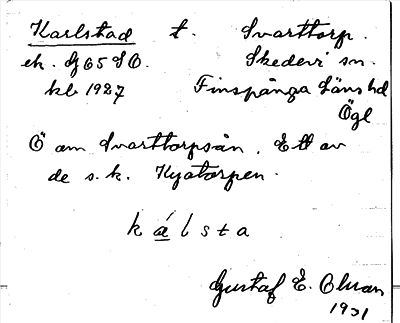 Karlstad t. Svarttorp.
ek. Bj 65 SO. Skedevi sn.
kb 1927 Finspånga läns hd
Ögl
Ö om Svarttorpsån. Ett av
de s.k. Nyatorpen.
k á l s t a
Gustaf E. Olsson
1931